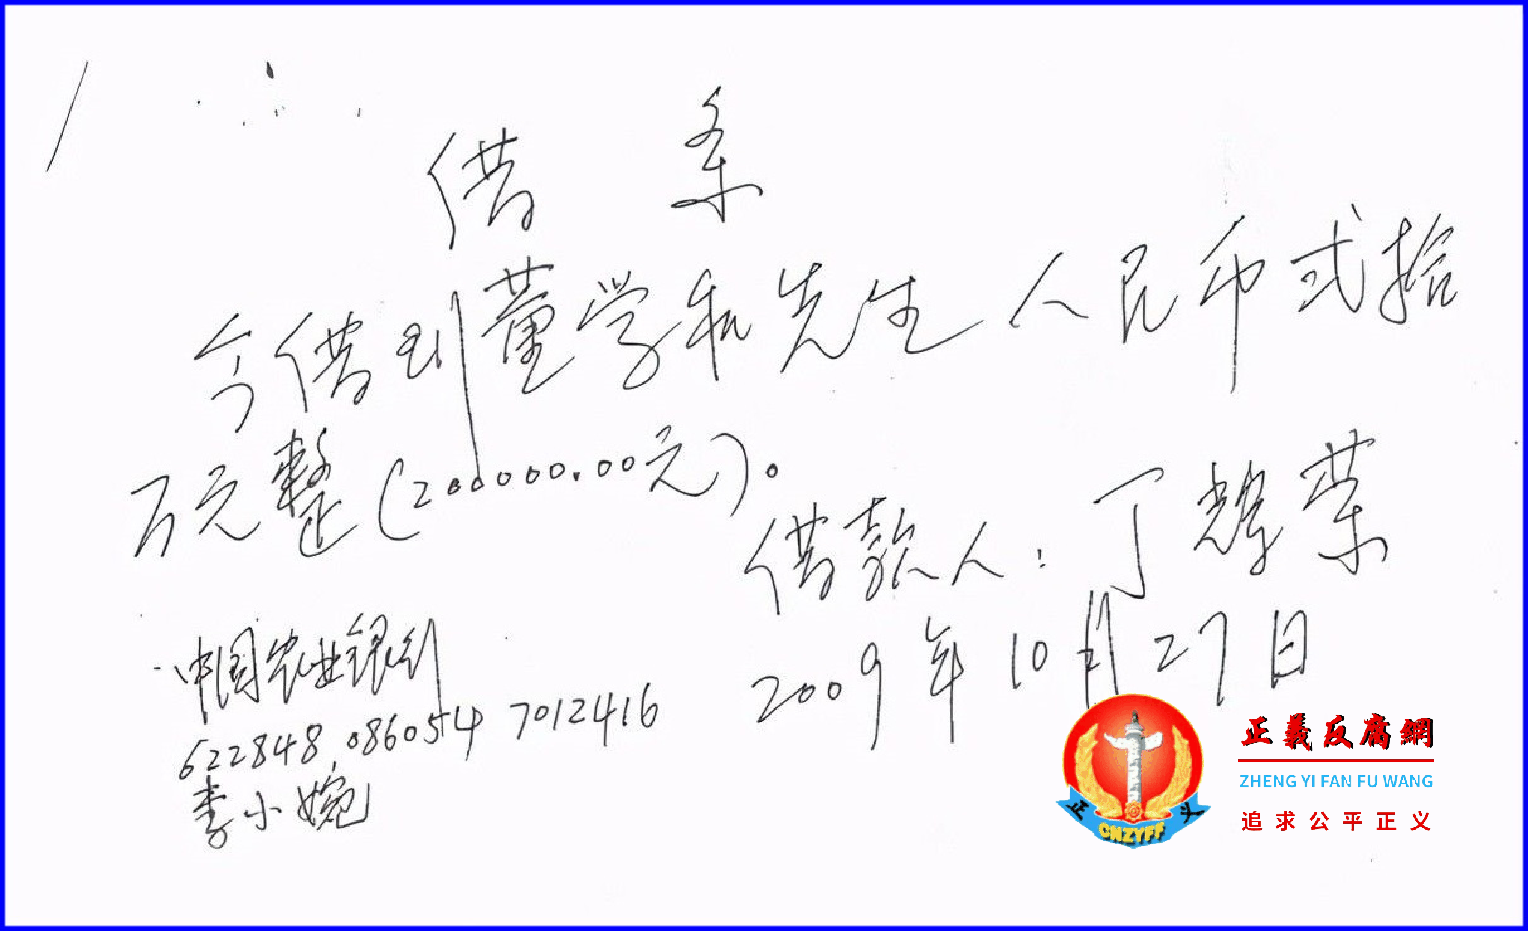 借 条
今借到董学和先生人民币弍拾
万元整(200000.00元)。
借款人:丁辉荣
2009年10月27日
中国农业银行
622848 0860514 7012416
李小婉
正義反腐網
ZHENG YI FAN FU WANG
追求公平正义
正 义
CNZYFF